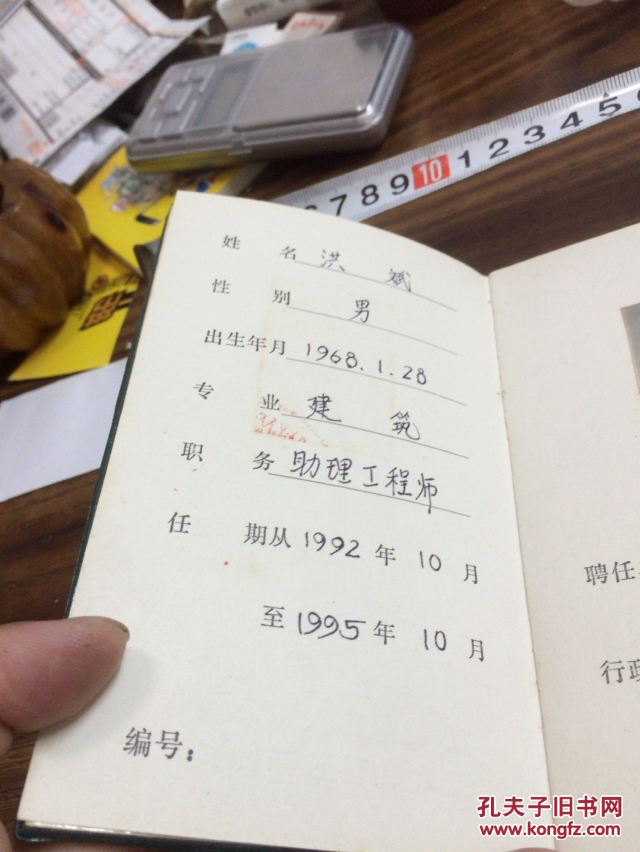 7 8 9 10 1 2 3 4 5 6
姓 名 洪 斌
性 别 男
出生年月 1968.1.28
专 业 建 筑
职 务 助理工程师
任 期从 1992 年 10 月
至 1995 年 10 月
编号:
聘任
行政
孔夫子旧书网
www.kongfz.com